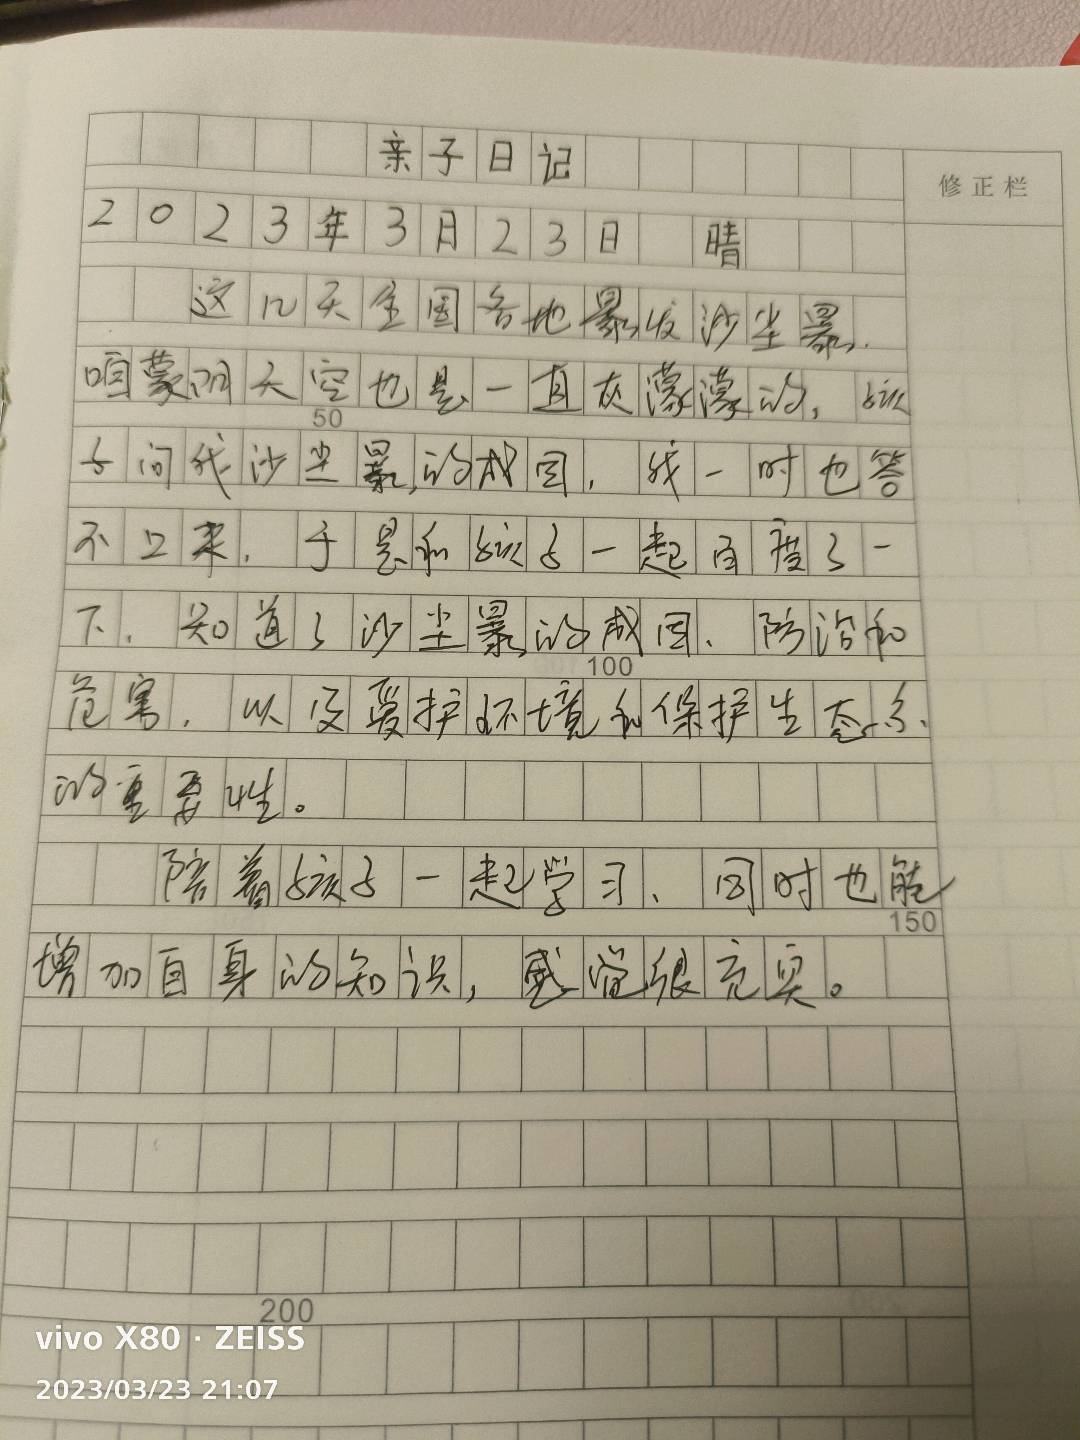 亲子日记
修正栏
2023年3月23日 晴
这几天全国各地暴发沙尘暴.
咱蒙阴天空也是一直灰濛濛的, 孩
50
子问我沙尘暴的成因, 我一时也答
不上来. 于是和孩子一起百度了一
下, 知道了沙尘暴的成因、防治和
100
危害, 以及爱护环境和保护生态系
的重要性。
陪着孩子一起学习、同时也能
150
增加自身的知识, 感觉很充实。
200
vivo X80 · ZEISS
2023/03/23 21:07